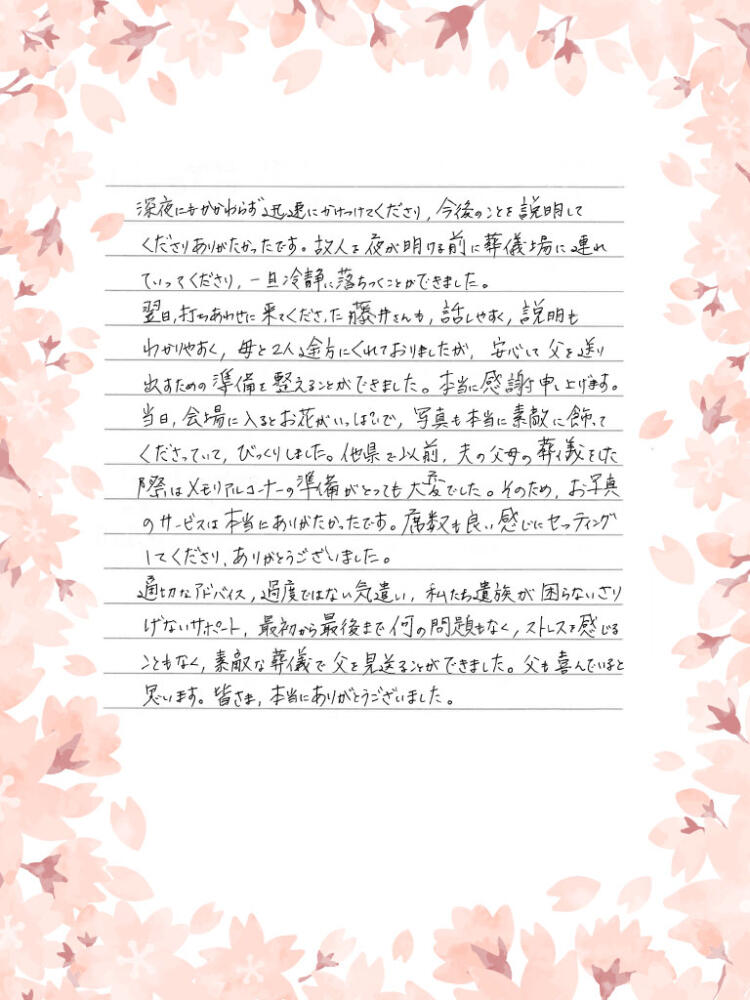 深夜にもかかわらず迅速にかけつけてくださり、今後のことを説明して
くださりありがたかったです。故人を夜が明ける前に葬儀場に連れ
ていってくださり、一旦冷静に落ちつくことができました。
翌日、打ちあわせに来てくださった藤井さんも、話しやすく、説明も
わかりやすく、母と2人途方にくれておりましたが、安心して父を送り
出すための準備を整えることができました。本当に感謝申し上げます。
当日、会場に入るとお花がいっぱいで、写真も本当に素敵に飾って
くださっていて、びっくりしました。他県で以前、夫の父母の葬儀をした
際はメモリアルコーナーの準備がとっても大変でした。そのため、お写真
のサービスは本当にありがたかったです。席数も良い感じにセッティング
してくださり、ありがとうございました。
適切なアドバイス、過度ではない気遣い、私たち遺族が困らないさり
げないサポート、最初から最後まで何の問題もなく、ストレスを感じる
こともなく、素敵な葬儀で父を見送ることができました。父も喜んでいると
思います。皆さま、本当にありがとうございました。